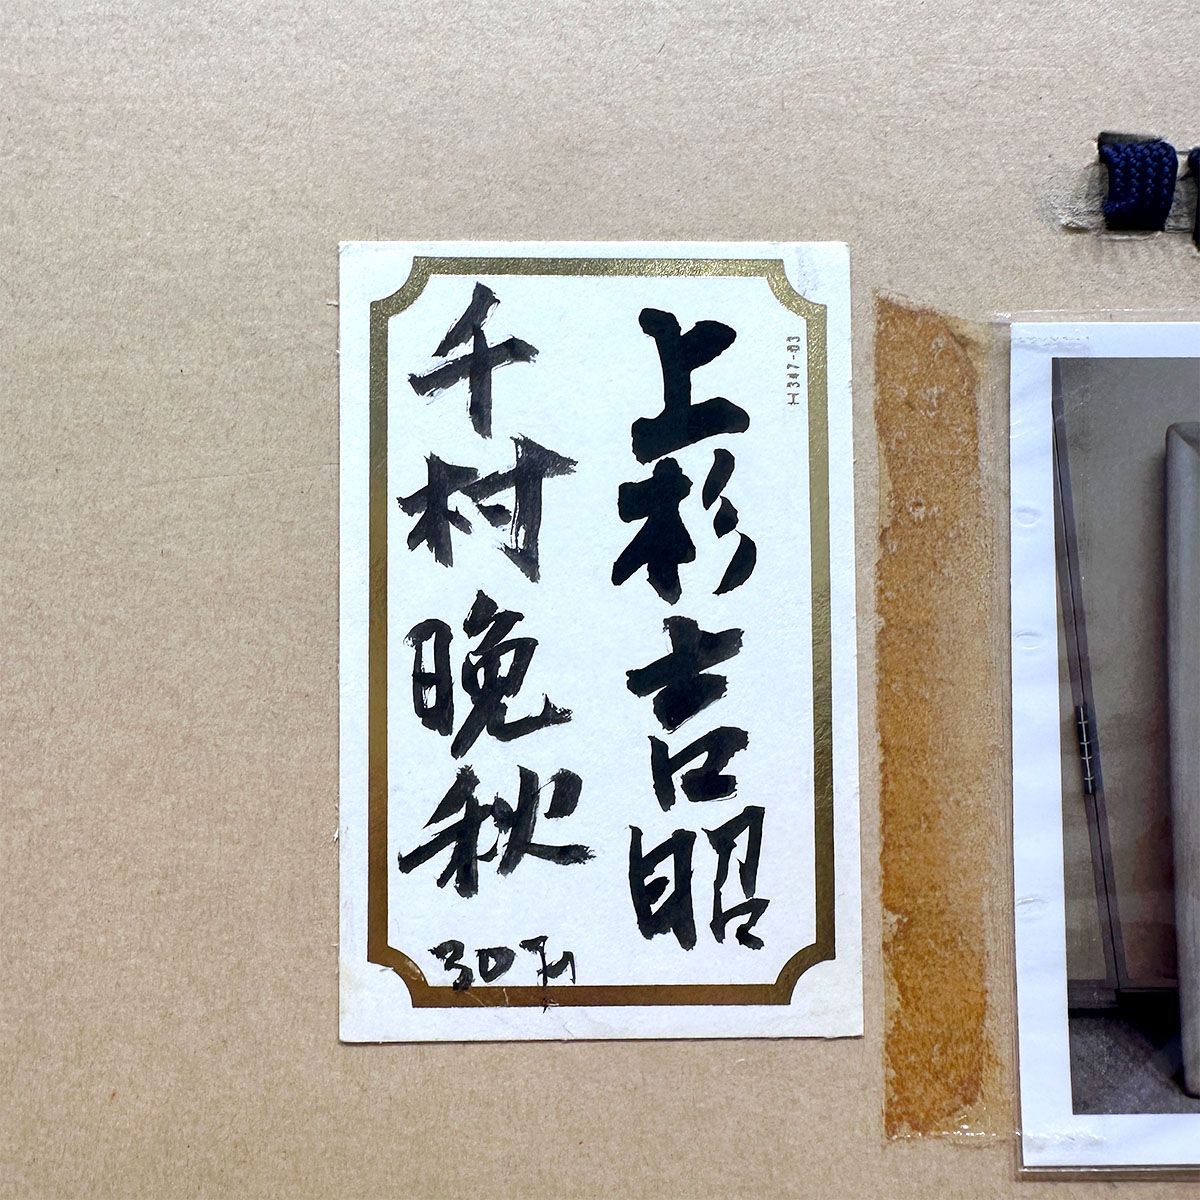 上杉吉昭
千村晩秋
30号
エ347-03